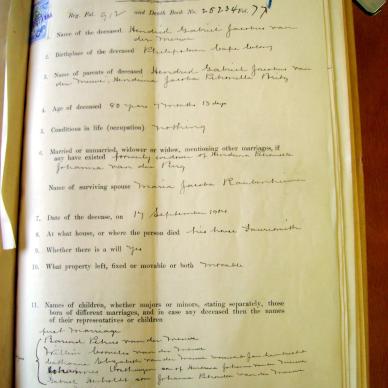 Reg. Fol. 912 and Death Book No. 25234 Fol. 77
1. Name of the deceased Hendrik Gabriel Jacobus van
der Merwe
2. Birthplace of the deceased Philippolis Cape Colony
3. Names of parents of deceased Hendrik Gabriel Jacobus van
der Merwe, Hendrina Jacoba Petronella Brits
4. Age of deceased 80 years 7 months 13 days
5. Conditions in life (occupation) nothing
6. Married or unmarried, widower or widow, mentioning other marriages, if
any have existed formerly widower of Hendrina
Johanna van den Berg
Name of surviving spouse Maria Jacoba Raubenheimer
7. Date of the decease, on 17 September 1904
8. At what house, or where the person died his house
9. Whether there is a will yes
10. What property left, fixed or movable or both Movable
11. Names of children, whether majors or minors, stating separately, those
born of different marriages, and in case any deceased then the names
of their representatives or children
first Marriage
Barend Petrus van der Merwe
Willem Cornelis van der Merwe
Elizabeth van der Merwe
Johannes son of Johanna van der Merwe
Gabriel son Johanna Petronella van der Merwe